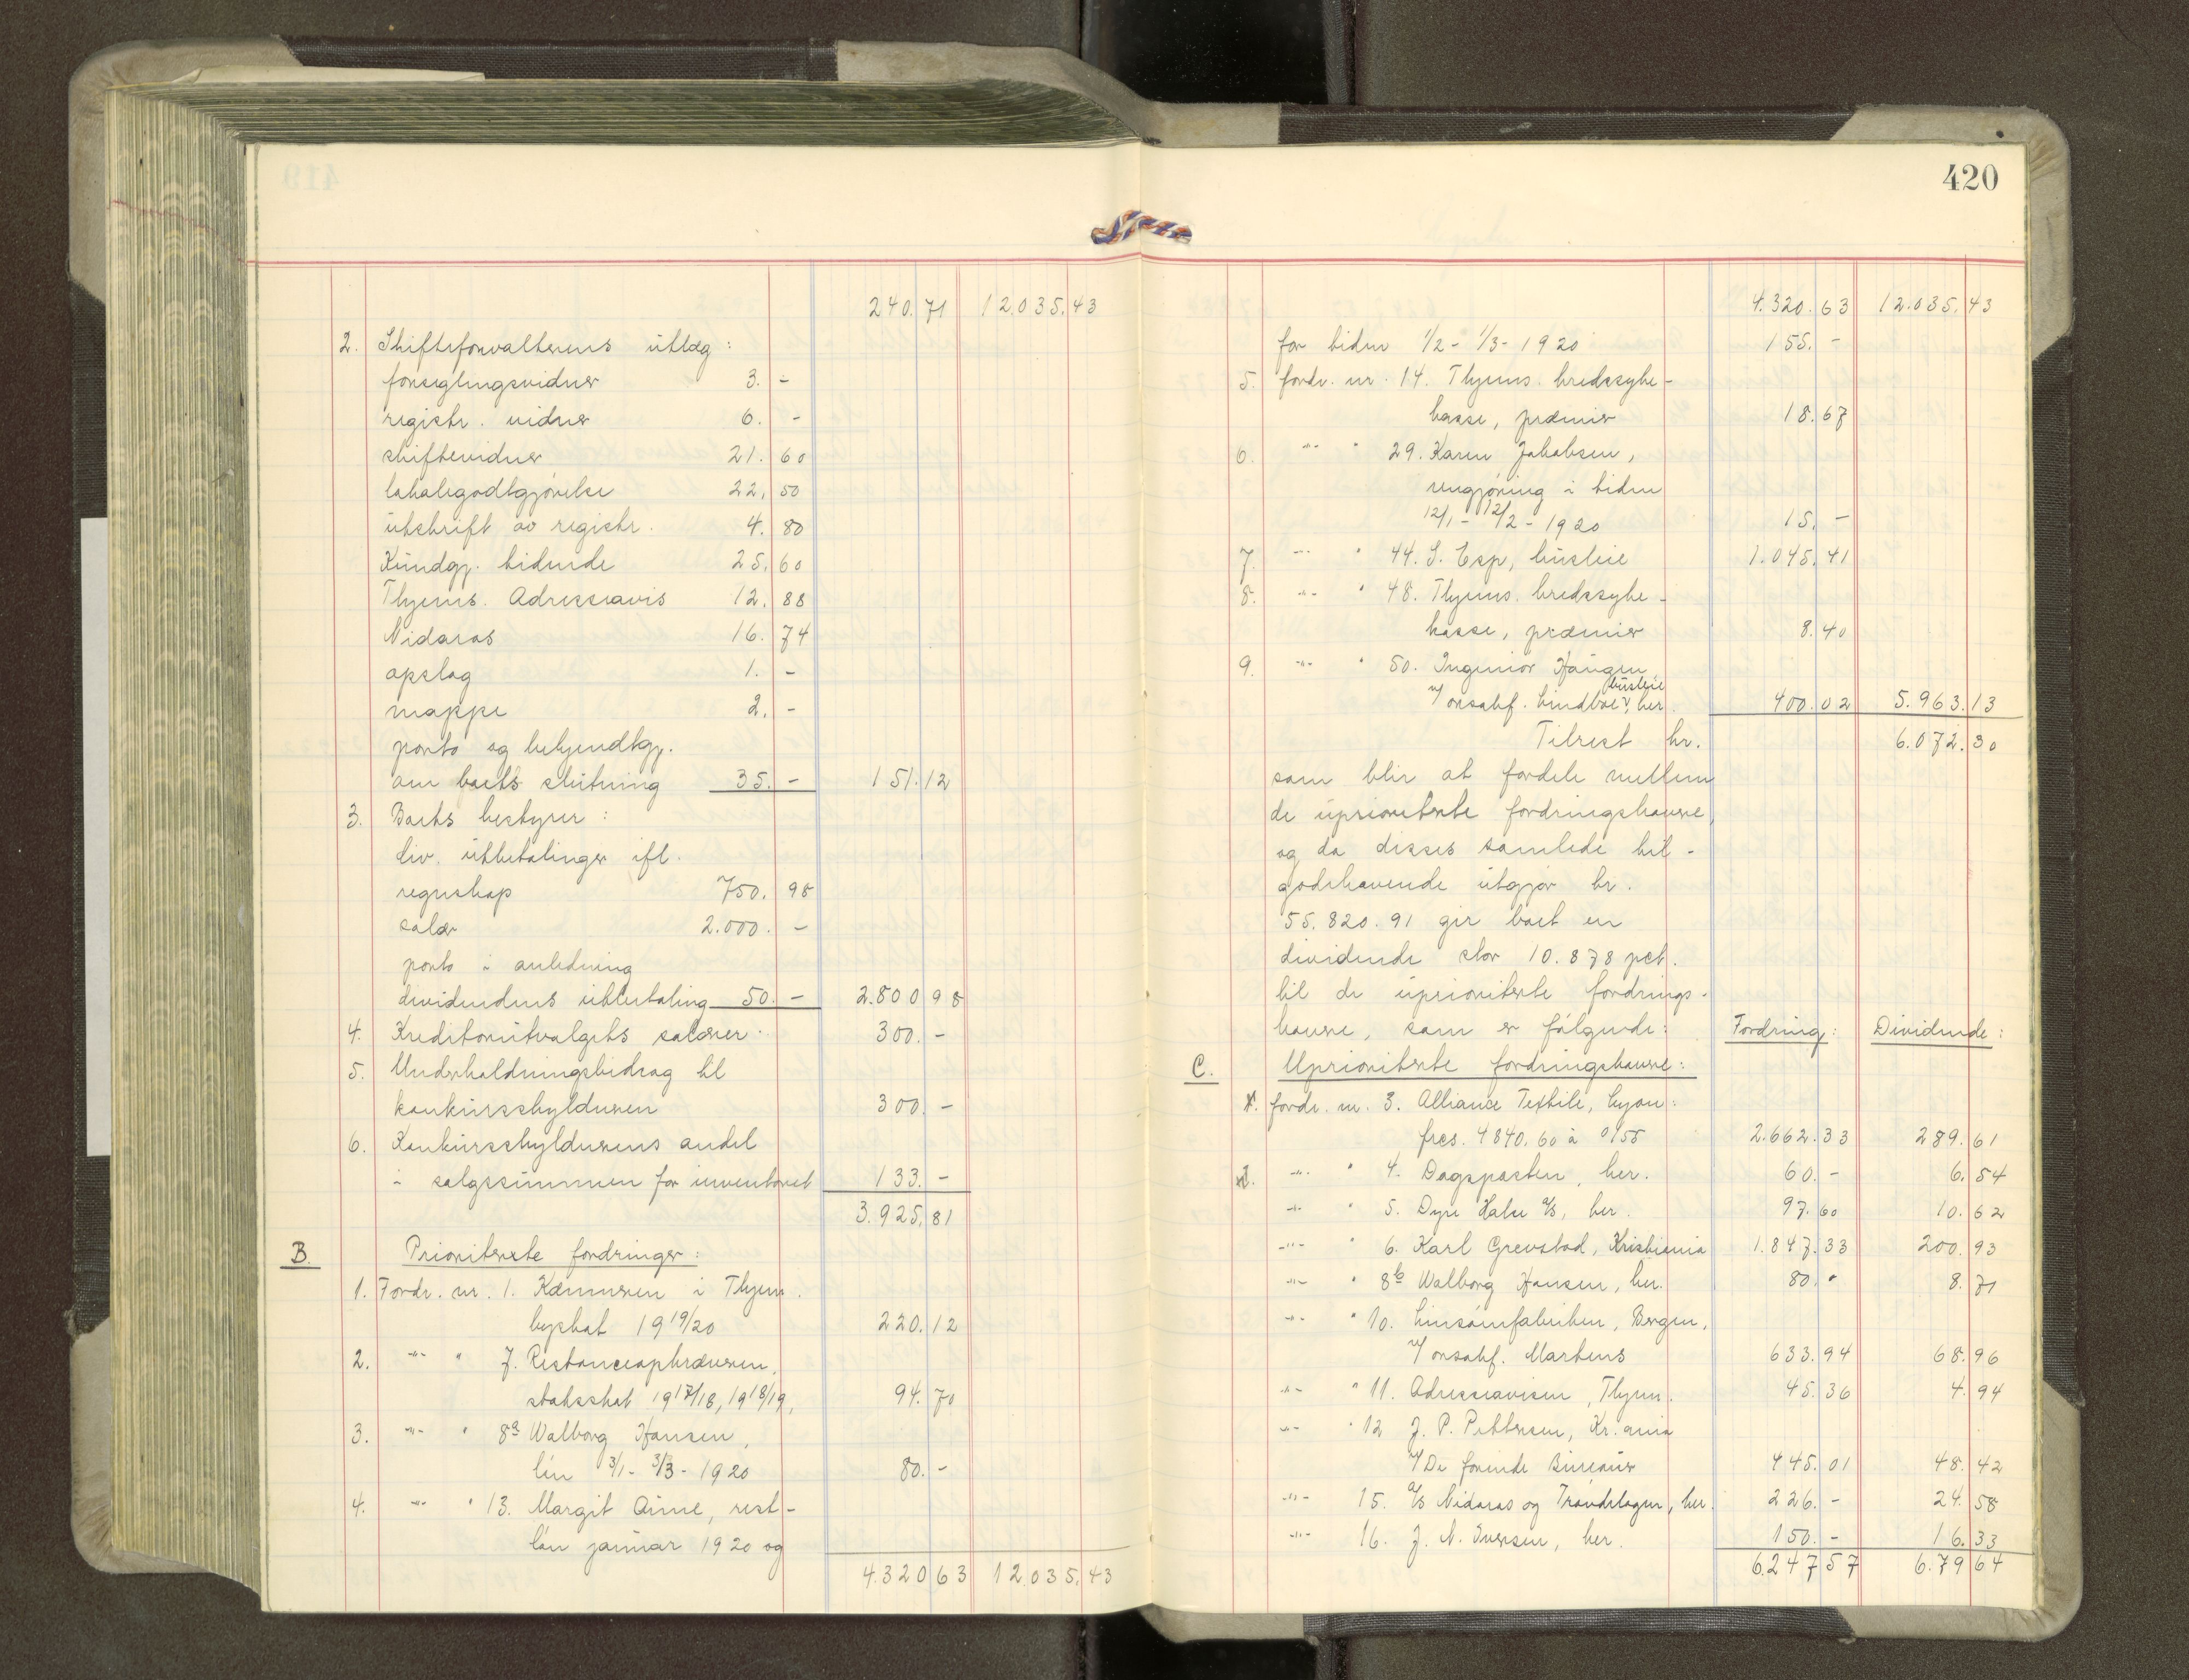 240.71 12.035.43
2. Skifteforvalterens utlæg:
forseglingsvidner 3. -
registr. vidner 6. -
skiftevidner 21.60
lokalegodtgjørelse 22.50
utskrift av registr. 4.80
Kundgj. tidende 25.60
Thjems. Adresseavis 12.88
Nidaros 16.74
opslag 1. -
mappe 2. -
porto og bekjendtgj.
om boets slutning 35. - 151.12
3. Boets bestyrer:
div. utbetalinger ifl.
regnskap 750.98
salær 2.000. -
porto i anledning
dividendens utbetaling 50. - 2.800 98
4. Kreditorutvalgets salærer 300. -
5. Underholdningsbidrag til
konkursskyldneren 300. -
6. Konkursskyldnerens andel
i salgssummen for inventaret 133. -
3.925.81
B. Prioriterte fordringer:
1. Fordr. nr. 1. Kæmneren i Thjem.
byskat 19 19/20 220.12
2. -"- " 7. Restanceopkræveren,
statsskat 19 17/18, 19 18/19, 94.70
3. -"- " 8a Walborg Hansen,
løn 3/1 - 3/3 - 1920 80. -
4. -"- " 13. Margit Aune, rest-
løn januar 1920 og
4.320 63 12.035.43
420
4.320.63 12.035.43
for tiden 1/2 - 1/3 - 1920 155. -
5. fordr. nr. 14. Thjems. kredssyke-
kasse, præmier 18.67
6. -"- " 29. Karen Jakobsen,
rengjøring i tiden
12/1 - 12/2 - 1920 15. -
7. -"- " 44. S. Esp, husleie 1.045.41
8. -"- " 48. Thjems. kredssyke-
kasse, præmier 8.40
9. -"- " 50. Ingeniør Haugen
husleie
v/ orsakf. Lindboe, her. 400.02 5.963.13
Tilrest kr. 6.072.30
som blir at fordele mellem
de uprioriterte fordringshavere,
og da disses samlede til-
godehavende utgjør kr.
55.820.91 gir boet en
dividende stor 10.878 pct.
til de uprioriterte fordrings-
havere, som er følgende: Fordring: Dividende:
C. Uprioriterte fordringshavere:
1. fordr. nr. 3. Alliance Textile, Lyon:
frcs. 4840.60 à 0/55 2.662.33 289.61
2. -"- " 4. Dagsposten, her. 60. - 6.54
-"- " 5. Dyre Halse A/S, her. 97.60 10.62
-"- " 6. Karl Grevstad, Kristiania 1.847.33 200.93
-"- " 8b Walborg Hansen, her. 80. " 8.71
-"- " 10. Linsømfabriken, Bergen,
v/ orsakf. Martens 633.94 68.96
-"- " 11. Adresseavisen, Thjem. 45.36 4.94
-"- " 12 J. P. Pettersen, Kr.ania
v/ De forende Bureauer 445.01 48.42
-"- 15. A/S Nidaros og Trøndelagen, her. 226. - 24.58
-"- 16. J. N. Iversen, her. 150. - 16.33
6.247 57 6.79 64